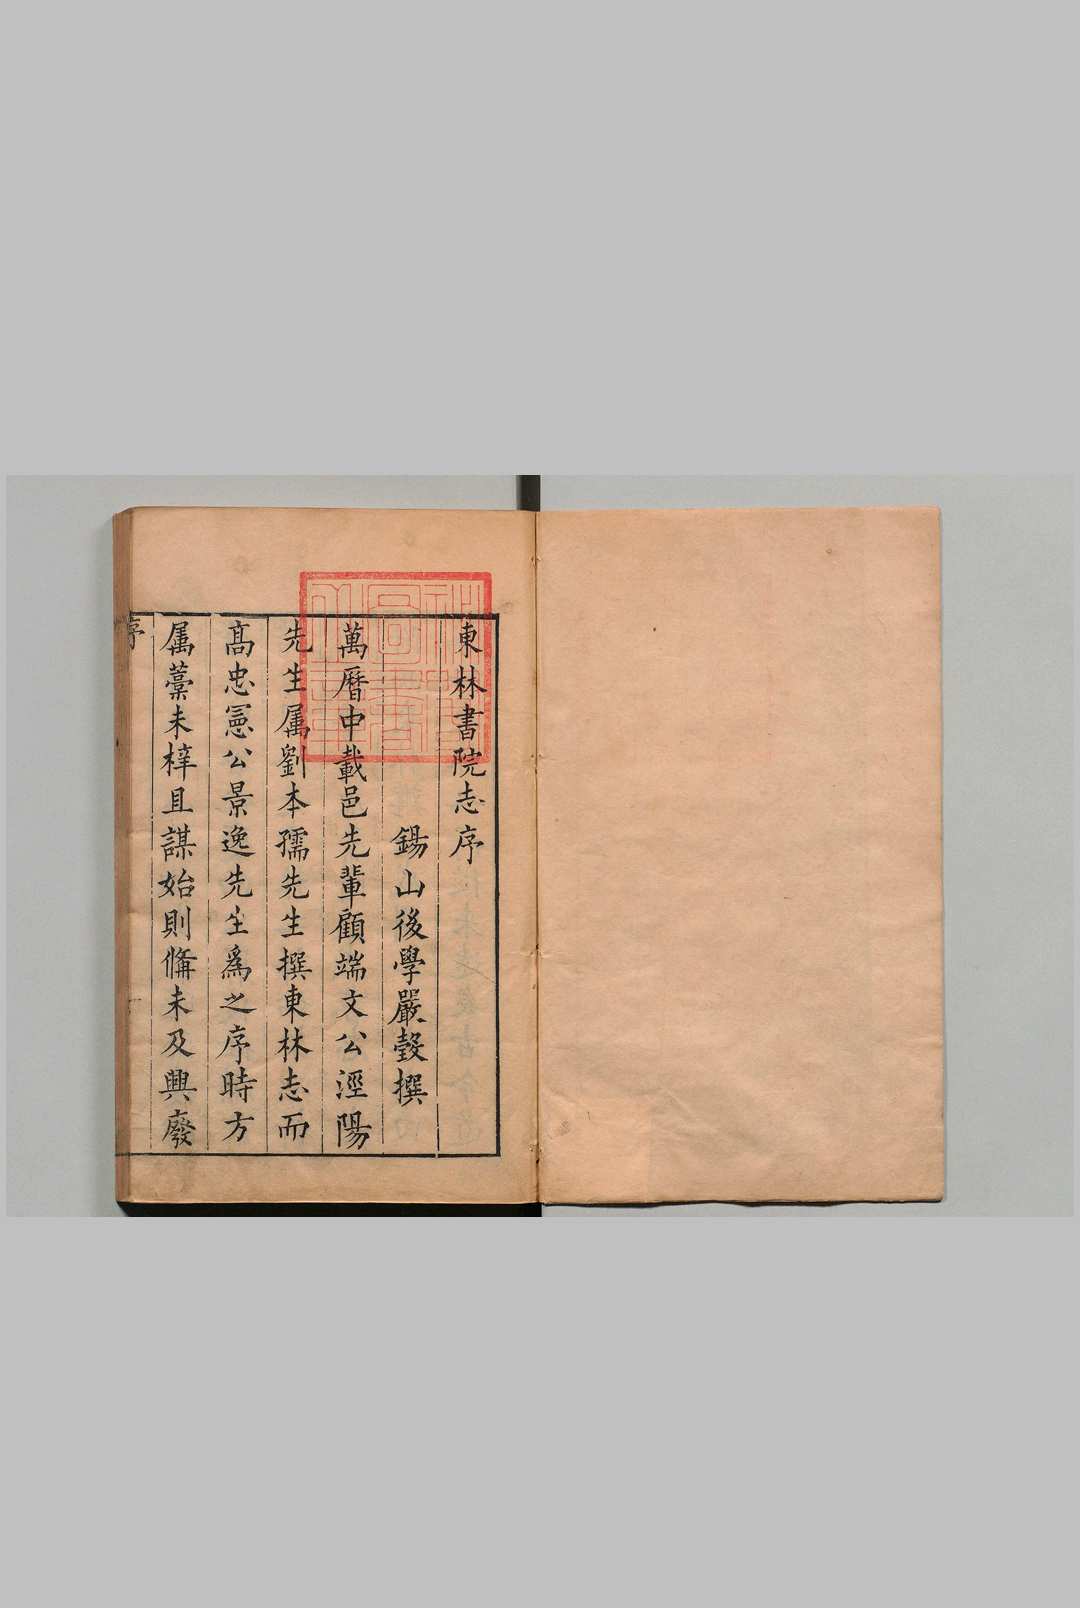 東林書院志序
錫山後學嚴瑴撰
萬曆中載邑先輩顧端文公涇陽
先生属劉本孺先生撰東林志而
髙忠憲公景逸先生爲之序時方
属藁未梓且謀始則俻未及興廢
序